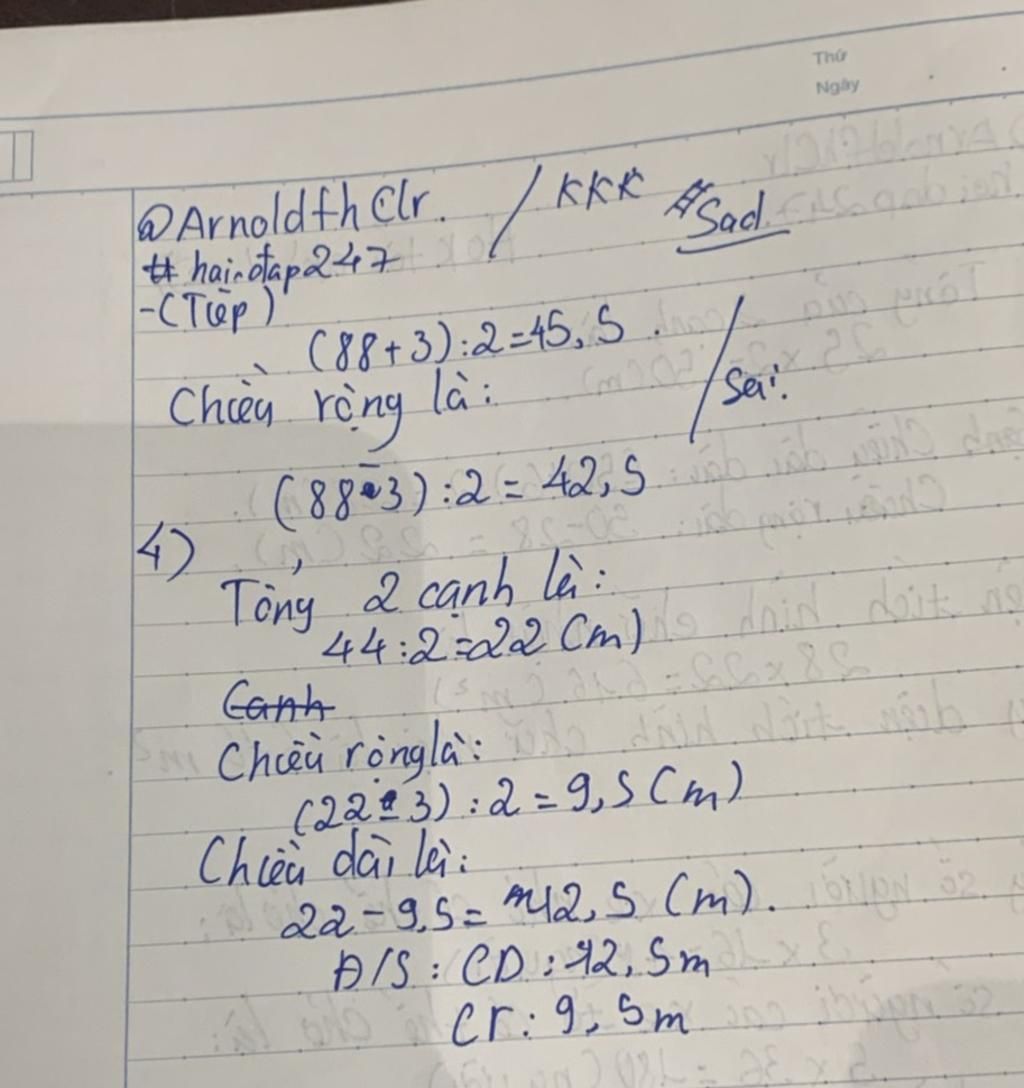 Thứ
Ngày
@ArnoldfhClr. / KKK #Sad
# hoidap247
-(Tiếp)
(88+3):2=45,5.
Chiều rộng là: / Sai.
(88-3):2=42,5
4)
Tổng 2 cạnh là:
44:2=22(m)
Canh
Chiều rộng là:
(22-3):2=9,5(m)
Chiều dài là:
22-9,5=12,5(m).
Đ/S: CD: 12,5m
Cr: 9,5m